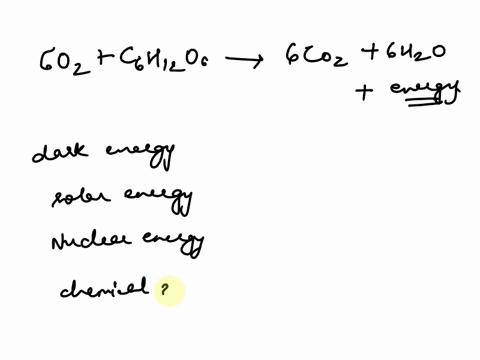 6O₂ + C₆H₁₂O₆ ⟶ 6CO₂ + 6H₂O
+ energy
dark energy
solar energy
Nuclear energy
chemical